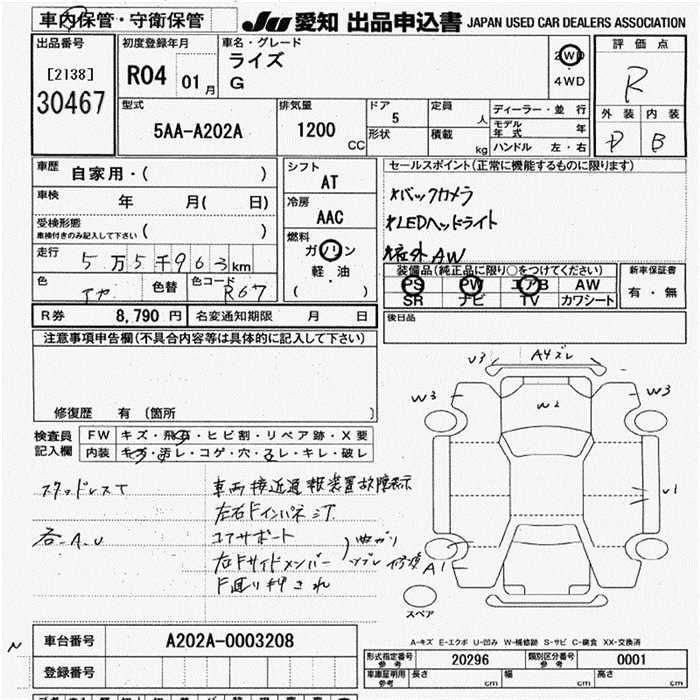 車内保管・守衛保管
JU 愛知 出品申込書 JAPAN USED CAR DEALERS ASSOCIATION
出品番号
[2138]
30467
初度登録年月
R04 01月
車名・グレード
ライズ
G
2WD
4WD
評価点
R
外装 内装
D B
型式
5AA-A202A
排気量
1200 CC
ドア
5
形状
定員 人
積載 kg
ディーラー・並行
モデル年式 年
ハンドル 左・右
車歴 自家用・( )
車検 年 月( 日)
受検形態
車検付きのみ記入して下さい ( )
走行 5万5千963km
色 色替 色コード R67
シフト
AT
冷房
AAC
燃料
ガソリン
軽・油
( )
セールスポイント(正常に機能するものに限ります)
*バックカメラ
*LEDヘッドライト
*社外AW
装備品(純正品に限り○をつけてください)
PS PW エアB AW
SR ナビ TV カワシート
新車保証書
有・無
後日品
R券 8,790 円 名変通知期限 月 日
注意事項申告欄(不具合内容等は具体的に記入して下さい)
修復歴 有 (箇所 )
検査員記入欄
FW キズ・飛石・ヒビ割・リペア跡・X要
内装 キズ・汚レ・コゲ・穴・スレ・キレ・破レ
スタッドレスT
各A.U
車両接近通報装置故障表示
左右Fインパネ
コアサポート
右Fサイドメンバー
曲がり
修復
V3 A4ズレ
W3 W2 W3
U1
A1
スペア
A-キズ E-エクボ U-凹み W-補修跡 S-サビ C-腐食 XX-交換済
N
車台番号 A202A-0003208
登録番号
形式指定番号 参考 20296 類別区分番号 参考 0001
車庫証明用 参考 長さ cm 幅 cm 高さ cm